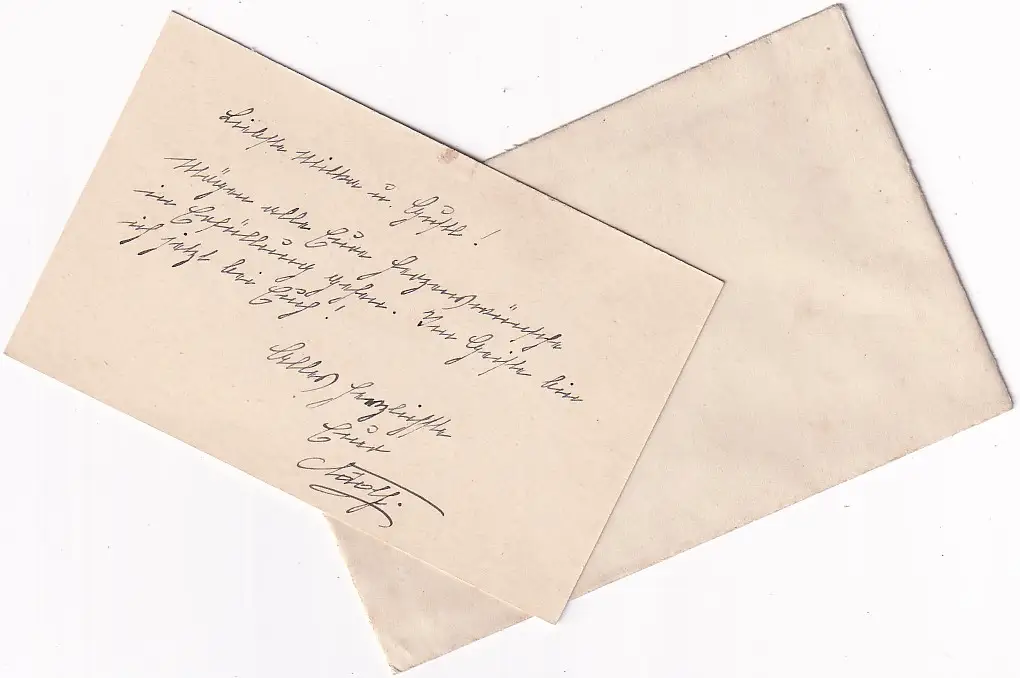 Liebste Mitzi u. Gustl!
Mögen alle Eure Herzenswünsche
in Erfüllung gehen. Im Geiste bin
ich jetzt bei Euch!
Alles Herzlichste
Euer
Adolf.